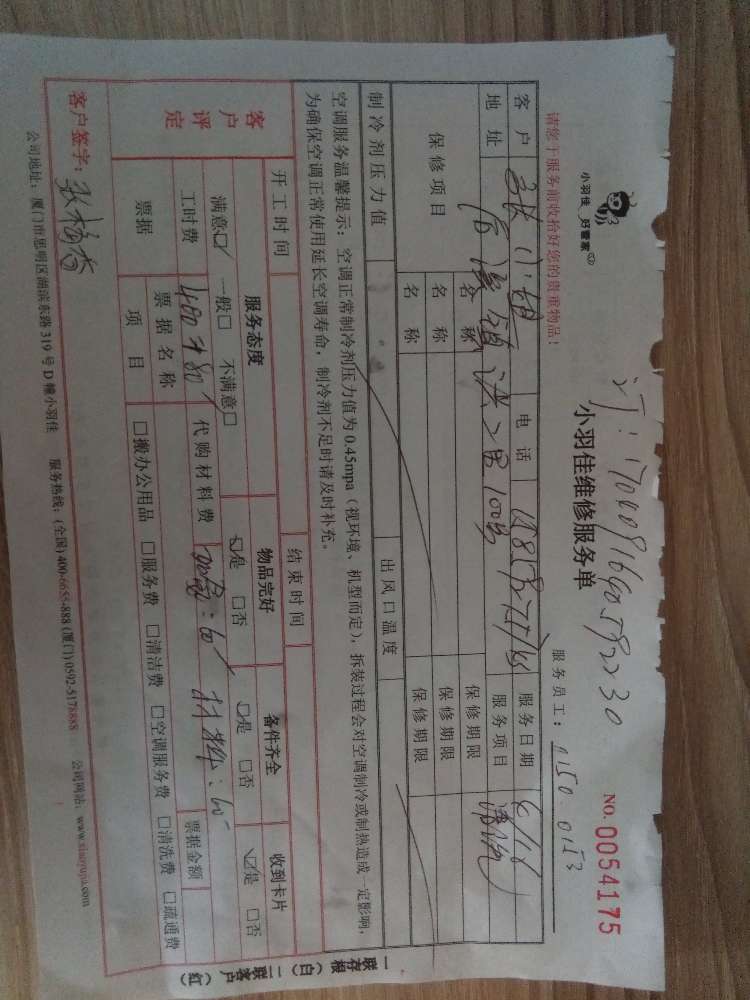 小羽佳 好管家
小羽佳维修服务单
NO. 0054175
请您于服务前收拾好您的贵重物品！
服务员工：0150 0153
客户 张小姐 电话 服务日期 6/16
地址 后溪镇 服务项目 清洗
保修项目 名称 保修期限
名称 保修期限
名称 保修期限
制冷剂压力值 出风口温度
空调服务温馨提示：空调正常制冷剂压力值为0.45mpa（视环境、机型而定），拆装过程会对空调制冷或制热造成一定影响，
为确保空调正常使用延长空调寿命，制冷剂不足时请及时补充。
开工时间 结束时间
客户评定 服务态度 物品完好 备件齐全 收到卡片
满意☑ 一般□ 不满意□ ☑是 □否 ☑是 □否 ☑是 □否
工时费 400+80 代购材料费 材料：60 票据金额
票据 票据名称
项目 □搬办公用品 □服务费 □清洁费 □空调服务费 □清洗费 □疏通费
一联存根（白）二联客户（红）
客户签字：
公司地址：厦门市思明区湖滨东路319号D幢小羽佳 服务热线：(全国)400-6655-888 (厦门)0592-5178888 公司网站：www.xiaoyujia.com